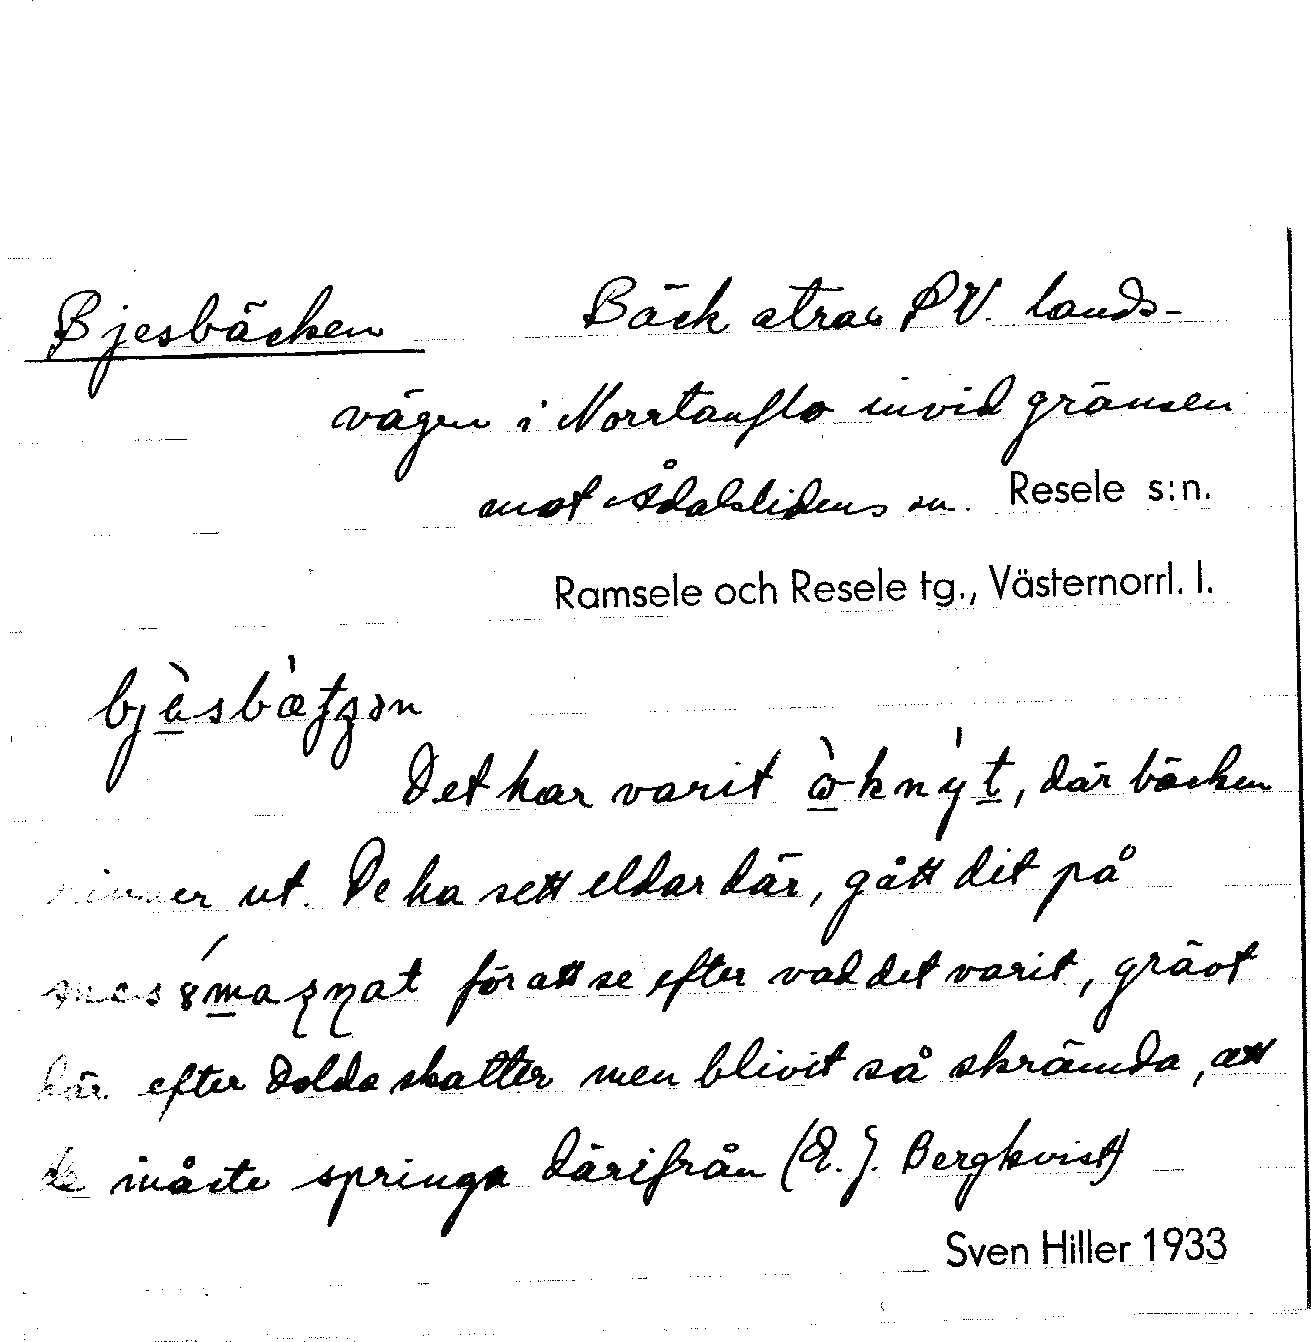 Bjesbäcken Bäck strax SV. lands-
vägen i Norrtanflo invid gränsen
mot Ådalslidens sn. Resele s:n.
Ramsele och Resele tg., Västernorrl. l.
Det har varit där bäcken
rinner ut. De ha sett eldar där, gått dit på
för att se efter vad det varit, grävt
där efter dolda skatter men blivit så skrämda, att
de måste springa därifrån (E. J. Bergkvist)
Sven Hiller 1933